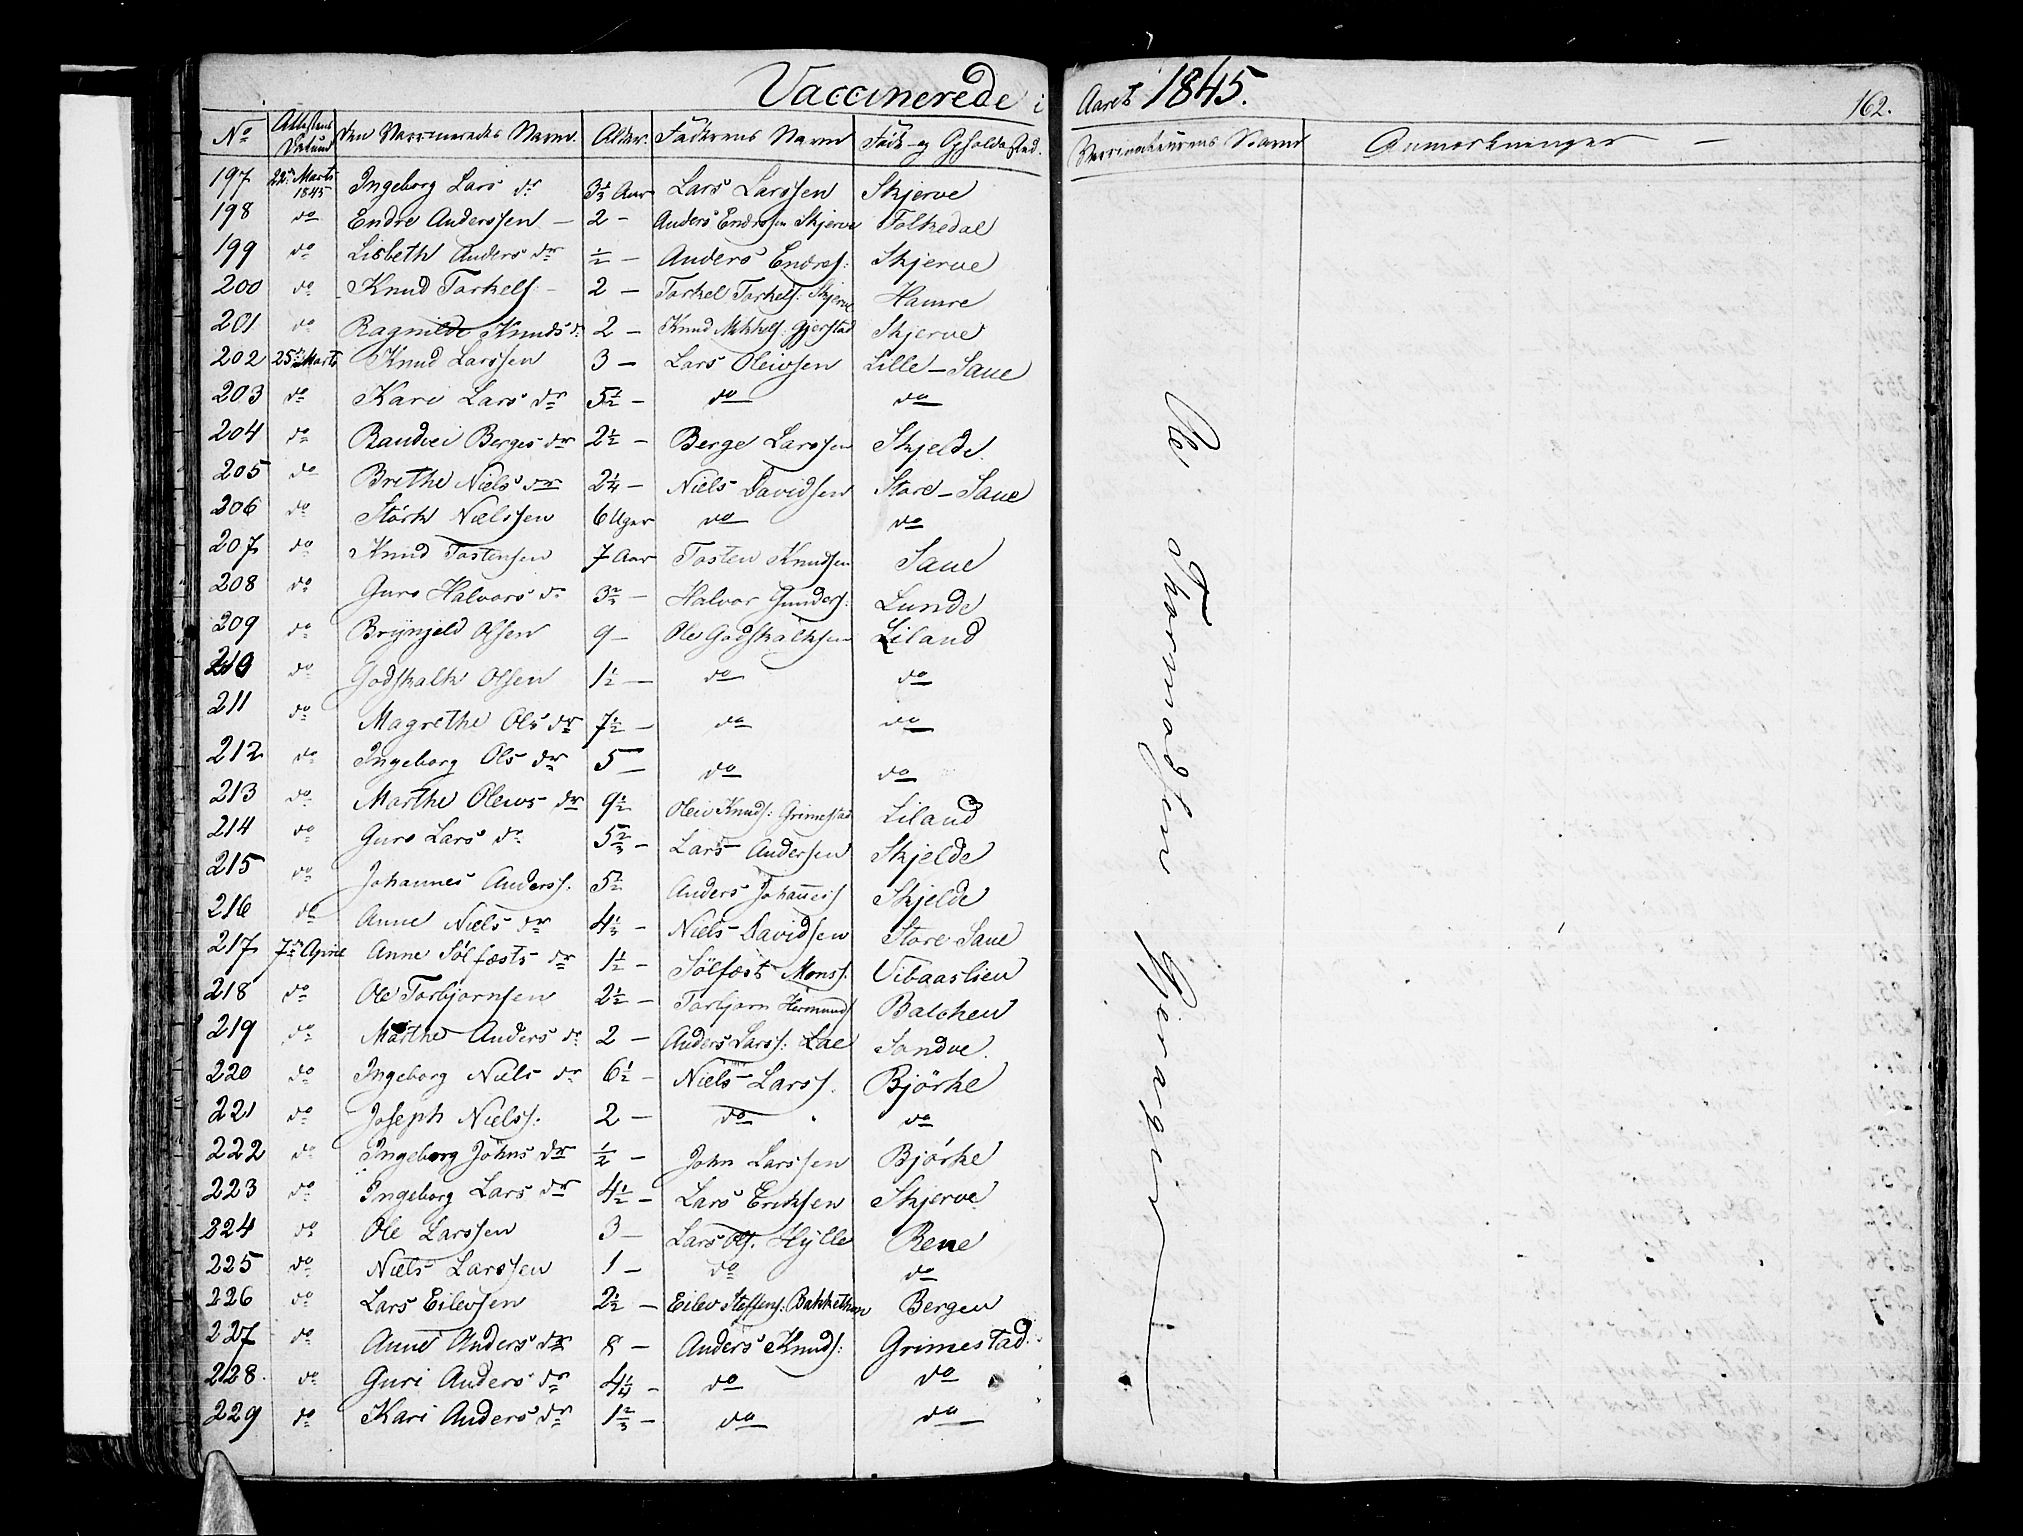 Vaccinerede i Aaret 1845.
162.
No Attestens Datum Den Vaccineredes Navn. Alder. Faderens Navn Føde- og Opholdssted. Vaccinateurens Navn Anmærkninger —
197 22de Marts 1845 Ingeborg Lars dr 3½ Aar Lars Larssen Skjerve
198 do Endre Anderssen — 2 — Anders Endressen Skjerve Folkedal
199 do Lisbeth Anders dr ½ — Anders Endres: Skjerve
200 do Knud Torkels — 2 — Torkel Torkels: Skjerve Hamre
201 do Ragnilde Knuds dr 2 — Knud Gjerstad Skjerve
202 25de Marts Knud Larssen 3 — Lars Oleivsen Lille-Saue
203 do Kari Lars dr 5½ — do do
204 do Randvei Berges dr 2½ — Berge Larssen Skjelde
205 do Brethe Niels dr 2¼ — Niels Davidsen Store-Saue
206 do Størk Nielssen 6 Uger do do
207 do Knud Tostensen 7 Aar Tosten Knudsen Saue
208 do Guro Halvors dr 3⅔ — Halvor Gunders: Lunde
209 do Brynjeld Olsen 9 — Ole Godskalksen Liland
210 do Godskalk Olsen 1½ — do do
211 do Magrethe Ols dr 7½ — do do
212 do Ingeborg Ols dr 5 — do do
213 do Marthe Oleivs dr 9½ Oleiv Knuds: Grimestad Liland
214 do Guro Lars dr 5⅔ — Lars Andersen Skjelde
215 do Johannes Anderss. 5½ Anders Johannes Skjelde
216 do Anne Niels dr 4⅓ — Niels Davidsen Store Saue
217 7de April Anne Sølfæsts dr 1½ — Sølfæst Monss. Vibaaslien
218 do Ole Torbjørnsen 2½ — Torbjørn Hermunds Balchen
219 do Marthe Anders dr 2 — Anders Larss: Lae Sandve.
220 do Ingeborg Niels dr 6½ — Niels Larss. Björke
221 do Joseph Nielss. 2 — do do
222 do Ingeborg Johns dr ½ — John Larssen Björke
223 do Ingeborg Lars dr 4½ — Lars Eriksen Skjerve
224 do Ole Larssen 3 — Lars Ols. Hylle Rene
225 do Niels Larssen 1 — do do
226 do Lars Eilevsen 2½ — Eilev Steffens: Bakkethun Bergen
227 do Anne Anders dr 8 — Anders Knuds: Grimestad
228. do Guri Anders dr 4¼ — do do
229 do Kari Anders dr 1⅔ — do do